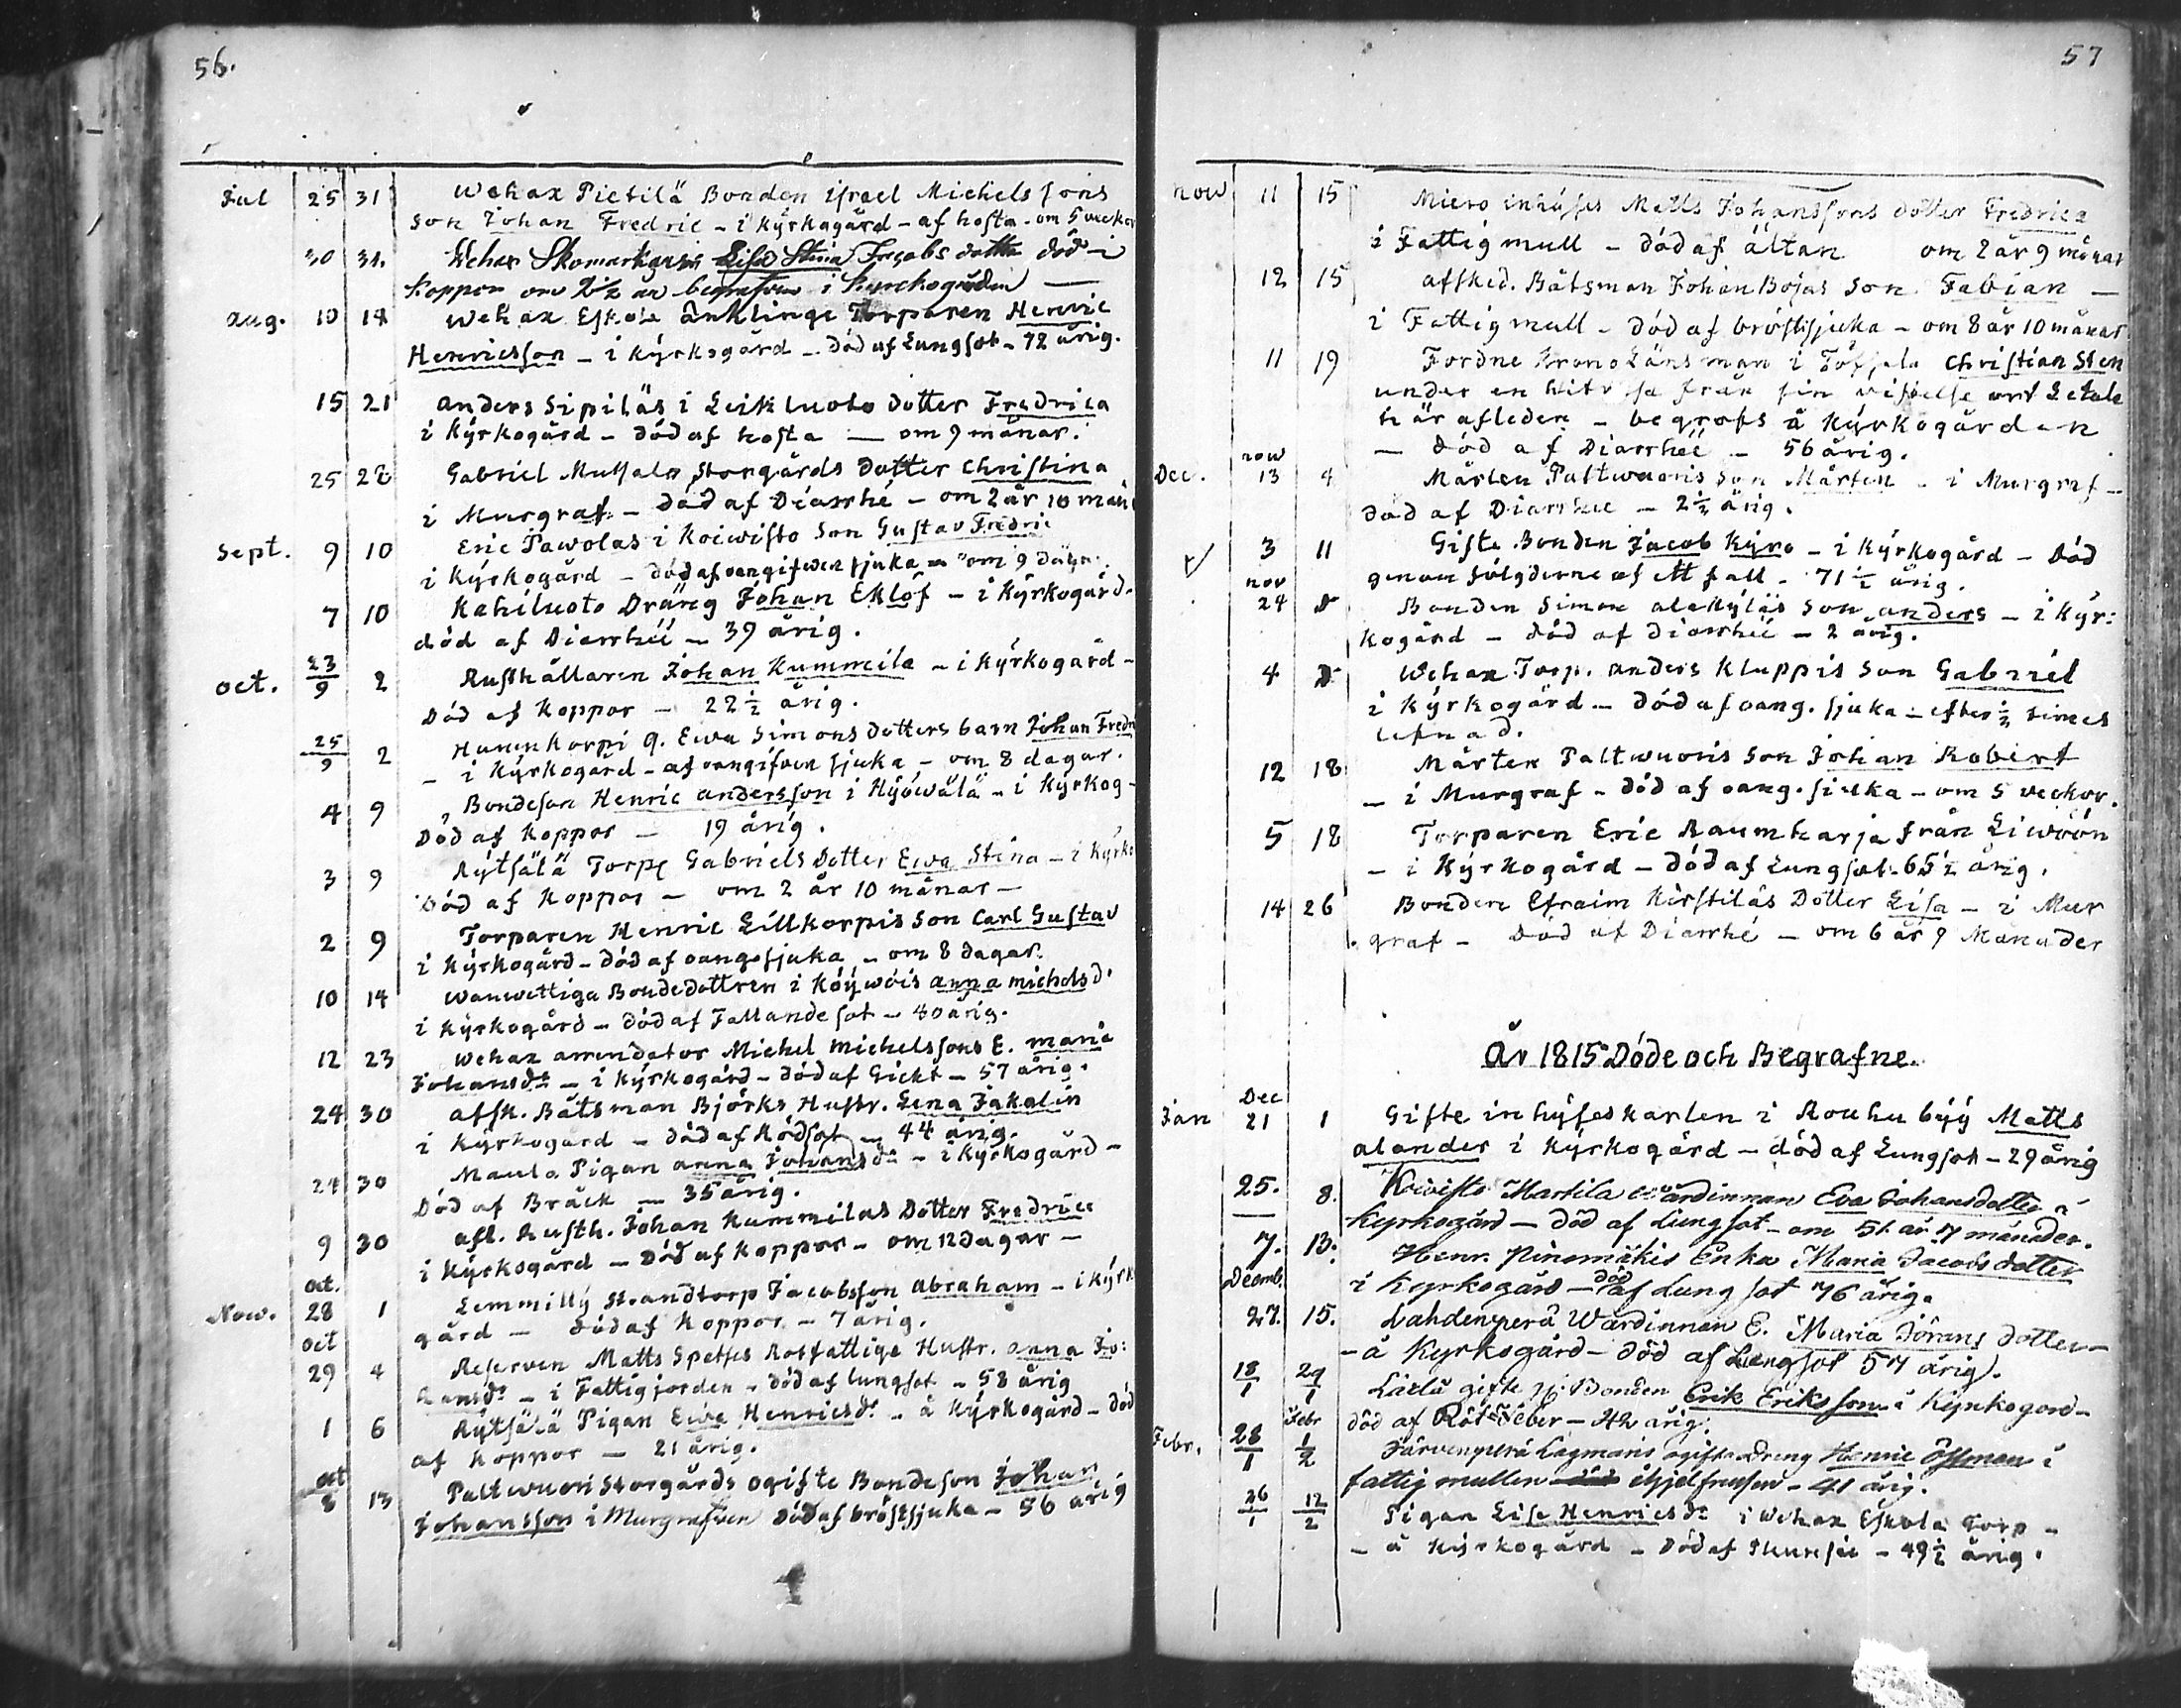 56.
Jul 25 31 Wehax Pietilä Bonden israel Michels sons
son Johan Fredric - i kyrkogård - af hosta - om 5 veckor
30 31. Wehax Lisa Stina Jacobs dotter död i
koppor om 2½ år begrafven i Kyrckogården
aug. 10 14 Wehax Eskola änklinge Torparen Henric
Henricsson - i kyrkogård - död af Lungsot - 72 årig.
15 21 anders Sipiläs i Leikluoto dotter Fredrica
i kyrkogård - död af hosta - om 9 månar.
25 28 Gabriel Mussalo Storgårds dotter Christina
i Murgraf - död af Diarrhé - om 2 år 10 mån
Sept. 9 10 Eric Pawolas i Koiwisto son Gustav Fredric
i kyrkogård - död af oangifwen sjuka - om 9 dagar.
7 10 Kahiluoto Dräng Johan Eklöf - i kyrkogård.
död af Diarrhéé - 39 årig.
oct. 23/9 2 Rusthållaren Johan Kummila - i kyrkogård -
Död af koppor - 22 ½ årig.
25/9 2 Hanenkorpi q. Ewa Simons dotters barn Johan Fredr
- i kyrkogård - af oangifven sjuka - om 8 dagar.
4 9 Bondeson Henric andersson i Hyöwälä - i kyrkog -
Död af koppor - 19 årig.
3 9 Rytsälä Torp Gabriels Dotter Ewa Stina - i kyrko
Död af koppor - om 2 år 10 månar -
2 9 Torparen Henric Lillkorpis son Carl Gustav
i kyrkogård - död af oang. sjuka - om 8 dagar.
10 14 wanwettiga Bondedottren i Köywöis anna michelsd.
i kyrkogård - död af Fallandesot - 40 årig.
12 23 Wehax arrendator Michel michelssons E. maria
Johansdr - i kyrkogård - död af Gickt - 57 årig.
24 30 afsk. Båtsman Björks Hustr. Lena Jakalin
i kyrkogård - död af Rödsot - 44 årig.
24 30 Maula Pigan anna Johansdr - i kyrkogård -
Död af Bråck - 35 årig.
9 30 afl. Rusth. Johan Kummilas Dotter Fredrica
i kyrkogård - död af koppor - om 12 dagar -
oct.
Now. 28 1 Lemmilly Strandtorp Jacobsson abraham - i kyrk
gård - död af koppor - 7 årig.
oct
29 4 Reserven Matts Spetses Rotfattige Hustr. anna Jo:
hansdr - i Fattigjorden - död af lungsot - 58 årig
1 6 Rytsälä Pigan Ewa Henricsdr - å kyrkogård - död
af koppor - 21 årig.
oct
8 13 Paltwuori Storgårds ogifte Bondeson Johan
Johansson i Murgrafven död af bröstsjuka - 56 årig
57
now 11 15 Miero inhyses Matts Johanssons dotter Fredrica
i Fattigmull - död af ältan om 2 år 9 månar
12 15 afsked. Båtsman Johan Bojas son Fabian -
i Fattigmull - död af bröstsjuka - om 8 år 10 månar
11 19 Fordne Krono Länsman i Töfsala Christian Sten
under en hitresa från sin
här afleden - begrofs å kyrkogården
- död af Diarrhéé - 56 årig.
now
Dec. 13 4 Mårten Paltwuoris son Mårten - i Murgraf -
död af Diarrhee - 2½ årig.
3 11 Gifte Bonden Jacob Kyro - i kyrkogård - Död
genom följderne af ett fall - 71 ½ årig.
nov
24 Bonden Simon alakyläs son anders - i kyr:
kogård - död af Diarrhéé - 2 årig.
4 Wehax Torp. anders Kluppis son Gabriel
i kyrkogård - död af oang. sjuka - efter ½ times
lefnad.
12 18 Mårten Paltwuoris son Johan Robert
- i Murgraf - död af oang. sjuka - om 5 veckor.
5 18 Torparen Eric Raumharja från Liwöön
- i kyrkogård - död af Lungsot - 65½ årig.
14 26 Bonden Efraim Kirstiläs Dotter Lisa - i Mur
graf - död af Diarrhé - om 6 år 9 Månader
År 1815 Döde och Begrafne.
Dec
Jan 21 1 Gifte inhyseskarlen i Rouhu byy Matts
alander i kyrkogård - död af Lungsot - 29 årig
25. 8. Koivisto Martila wärdinnan Eva Johansdotter i
kyrkogård - död af Lungsot - om 51 år 7 månader.
7. 13. Henr. Pinomäkis Enka Maria Jacobs dotter
i kyrkogård - död af Lungsot 76 årig.
Decemb.
27. 15. Lahdenperä Wärdinnan E. Maria Jörans dotter -
- å kyrkogård - död af Lungsot 57 årig.
18/1 29/1 Lärlä gifte Bonden Erik Eriksson i kyrkogård -
död af Röt Feber - 42 årig.
Febr
Febr. 28/1 1/2 Järvenperä Lagmans ogifte Dreng Henric Öhman i
fattigmullen ihjelfrusen - 41 årig.
26/1 12/2 Pigan Lisa Henricsdr i Wehax Eskola Torp -
- å kyrkogård - död af - 49½ årig.